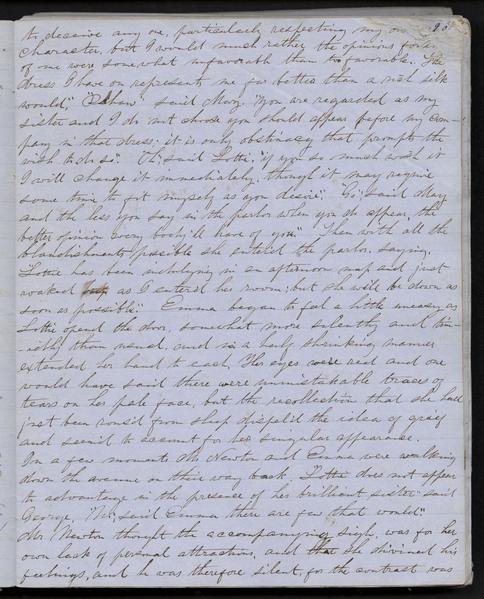 to deceive any one, particularly respecting my own
character, but I would much rather the opinions formed
of me were somewhat unfavorable than too favorable. The
dress I have on represents me far better than a rich silk
would," "Pshaw" said Mary, "you are regarded as my
sister and I do not choose you should appear before my com-
pany in that dress; it is only obstinacy that prompts the
wish to do so". "Oh," said Lottie, "if you so much wish it
I will change it immediately, though it may require
some time to fit myself as you desire." "Go," said Mary
and the less you say in the parlor when you do appear, the
better opinion every body'll have of you." Then with all the
blandishments possible she entered the parlor, saying,
"Lottie has been indulging in an afternoon nap and just
waked as I entered her room; but she will be down as
soon as possible." Emma began to feel a little uneasy as
Lottie opened the door, somewhat more silently and tim-
idly than usual, and in a half shrinking manner
extended her hand to each. Her eyes were red and one
would have said there were unmistakable traces of
tears on her pale face, but the recollection that she had
just been rous'd from sleep dispel'd the idea of grief
and seem'd to account for her singular appearance.
In a few moments Mr Newton and Emma were walking
down the avenue on their way back. "Lottie does not appear
to advantage in the presence of her brilliant sister" said
George. "No," said Emma "there are few that would."
Mr Newton thought the accompanying sigh, was for her
own lack of personal attraction, and that she divined his
feelings, and he was therefore silent, for the contrast was